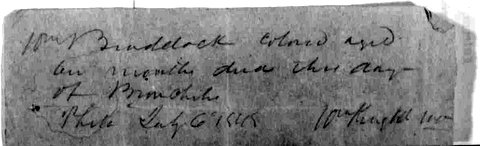 Wm Braddock colored aged
six months died this day
of Bronchitis
Phila July 6 1848 Wm Knight MD